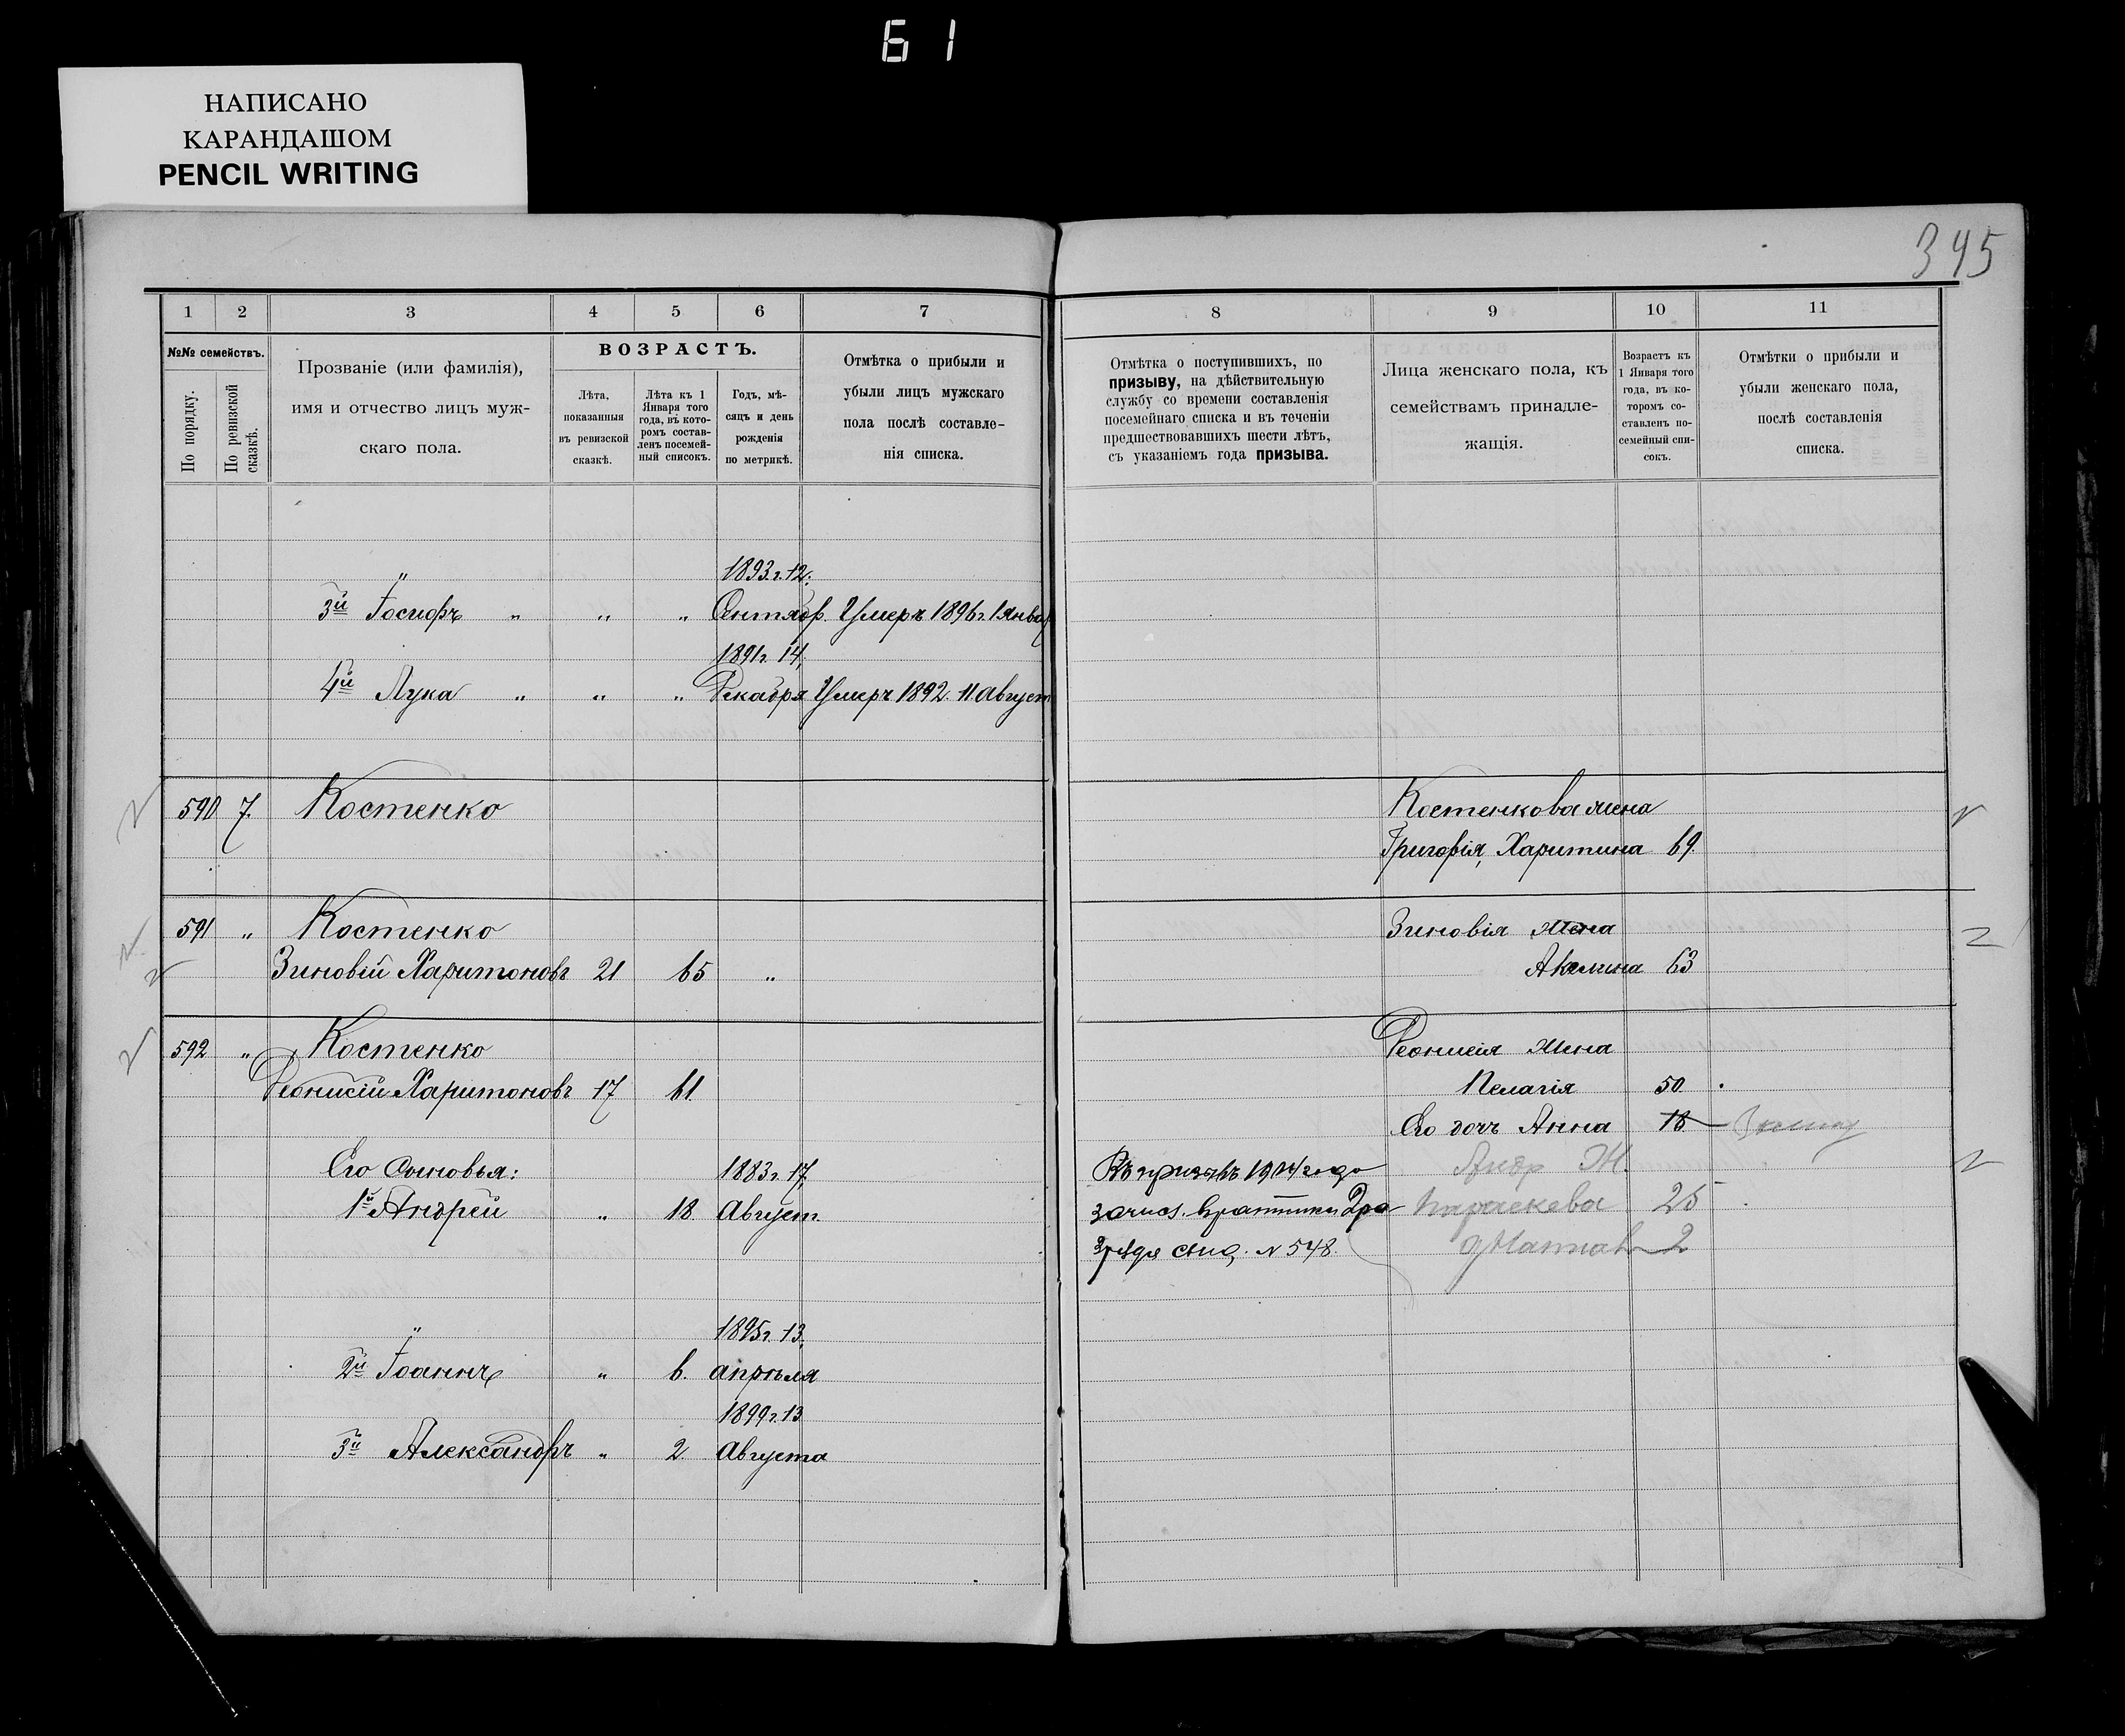 61
НАПИСАНО
КАРАНДАШОМ
PENCIL WRITING
345
1 2 3 4 5 6 7
№№ семействъ.
По порядку.
По ревизской сказкѣ.
Прозваніе (или фамилія),
имя и отчество лицъ муж-
скаго пола.
ВОЗРАСТЪ.
Лѣта,
показанныя
въ ревизской
сказкѣ.
Лѣта къ 1
Января того
года, въ кото-
ромъ состав-
ленъ посемей-
ный списокъ.
Годъ, мѣ-
сяцъ и день
рожденія
по метрикѣ.
Отмѣтка о прибыли и
убыли лицъ мужскаго
пола послѣ составле-
нія списка.
1893 г. 12.
3й Іосифъ " " " Сентябр. Умеръ 1896 г. 1 Январ
1891 г. 14,
4й Лука " " " Декабря Умеръ 1892. 11 Август
590 7. Костенко
591 " Костенко
Зиновій Харитоновъ 21 65 "
592 " Костенко
Деонисій Харитоновъ 17 61.
Его Сыновья: 1883 г. 17,
1й Андрей " 18 Август.
1895 г. 13,
2й Іоаннъ " 6. апрѣля
1899 г. 13
3й Александръ " 2 Августа
8 9 10 11
Отмѣтка о поступившихъ, по
призыву, на дѣйствительную
службу со времени составленія
посемейнаго списка и въ теченіи
предшествовавшихъ шести лѣтъ,
съ указаніемъ года призыва.
Лица женскаго пола, къ
семействамъ принадле-
жащія.
Возрастъ къ
1 Января того
года, въ ко-
торомъ со-
ставленъ по-
семейный спи-
сокъ.
Отмѣтки о прибыли и
убыли женскаго пола,
послѣ составленія
списка.
Костенкова жена
Григорія, Харитина 69.
Зиновія жена
Акилина 63
Деонисія жена
Пелагія 50.
Его дочь Анна 18
Въ призывъ 1904 года Андр Ж.
зачисл. Параскева 25
№ 548. 2